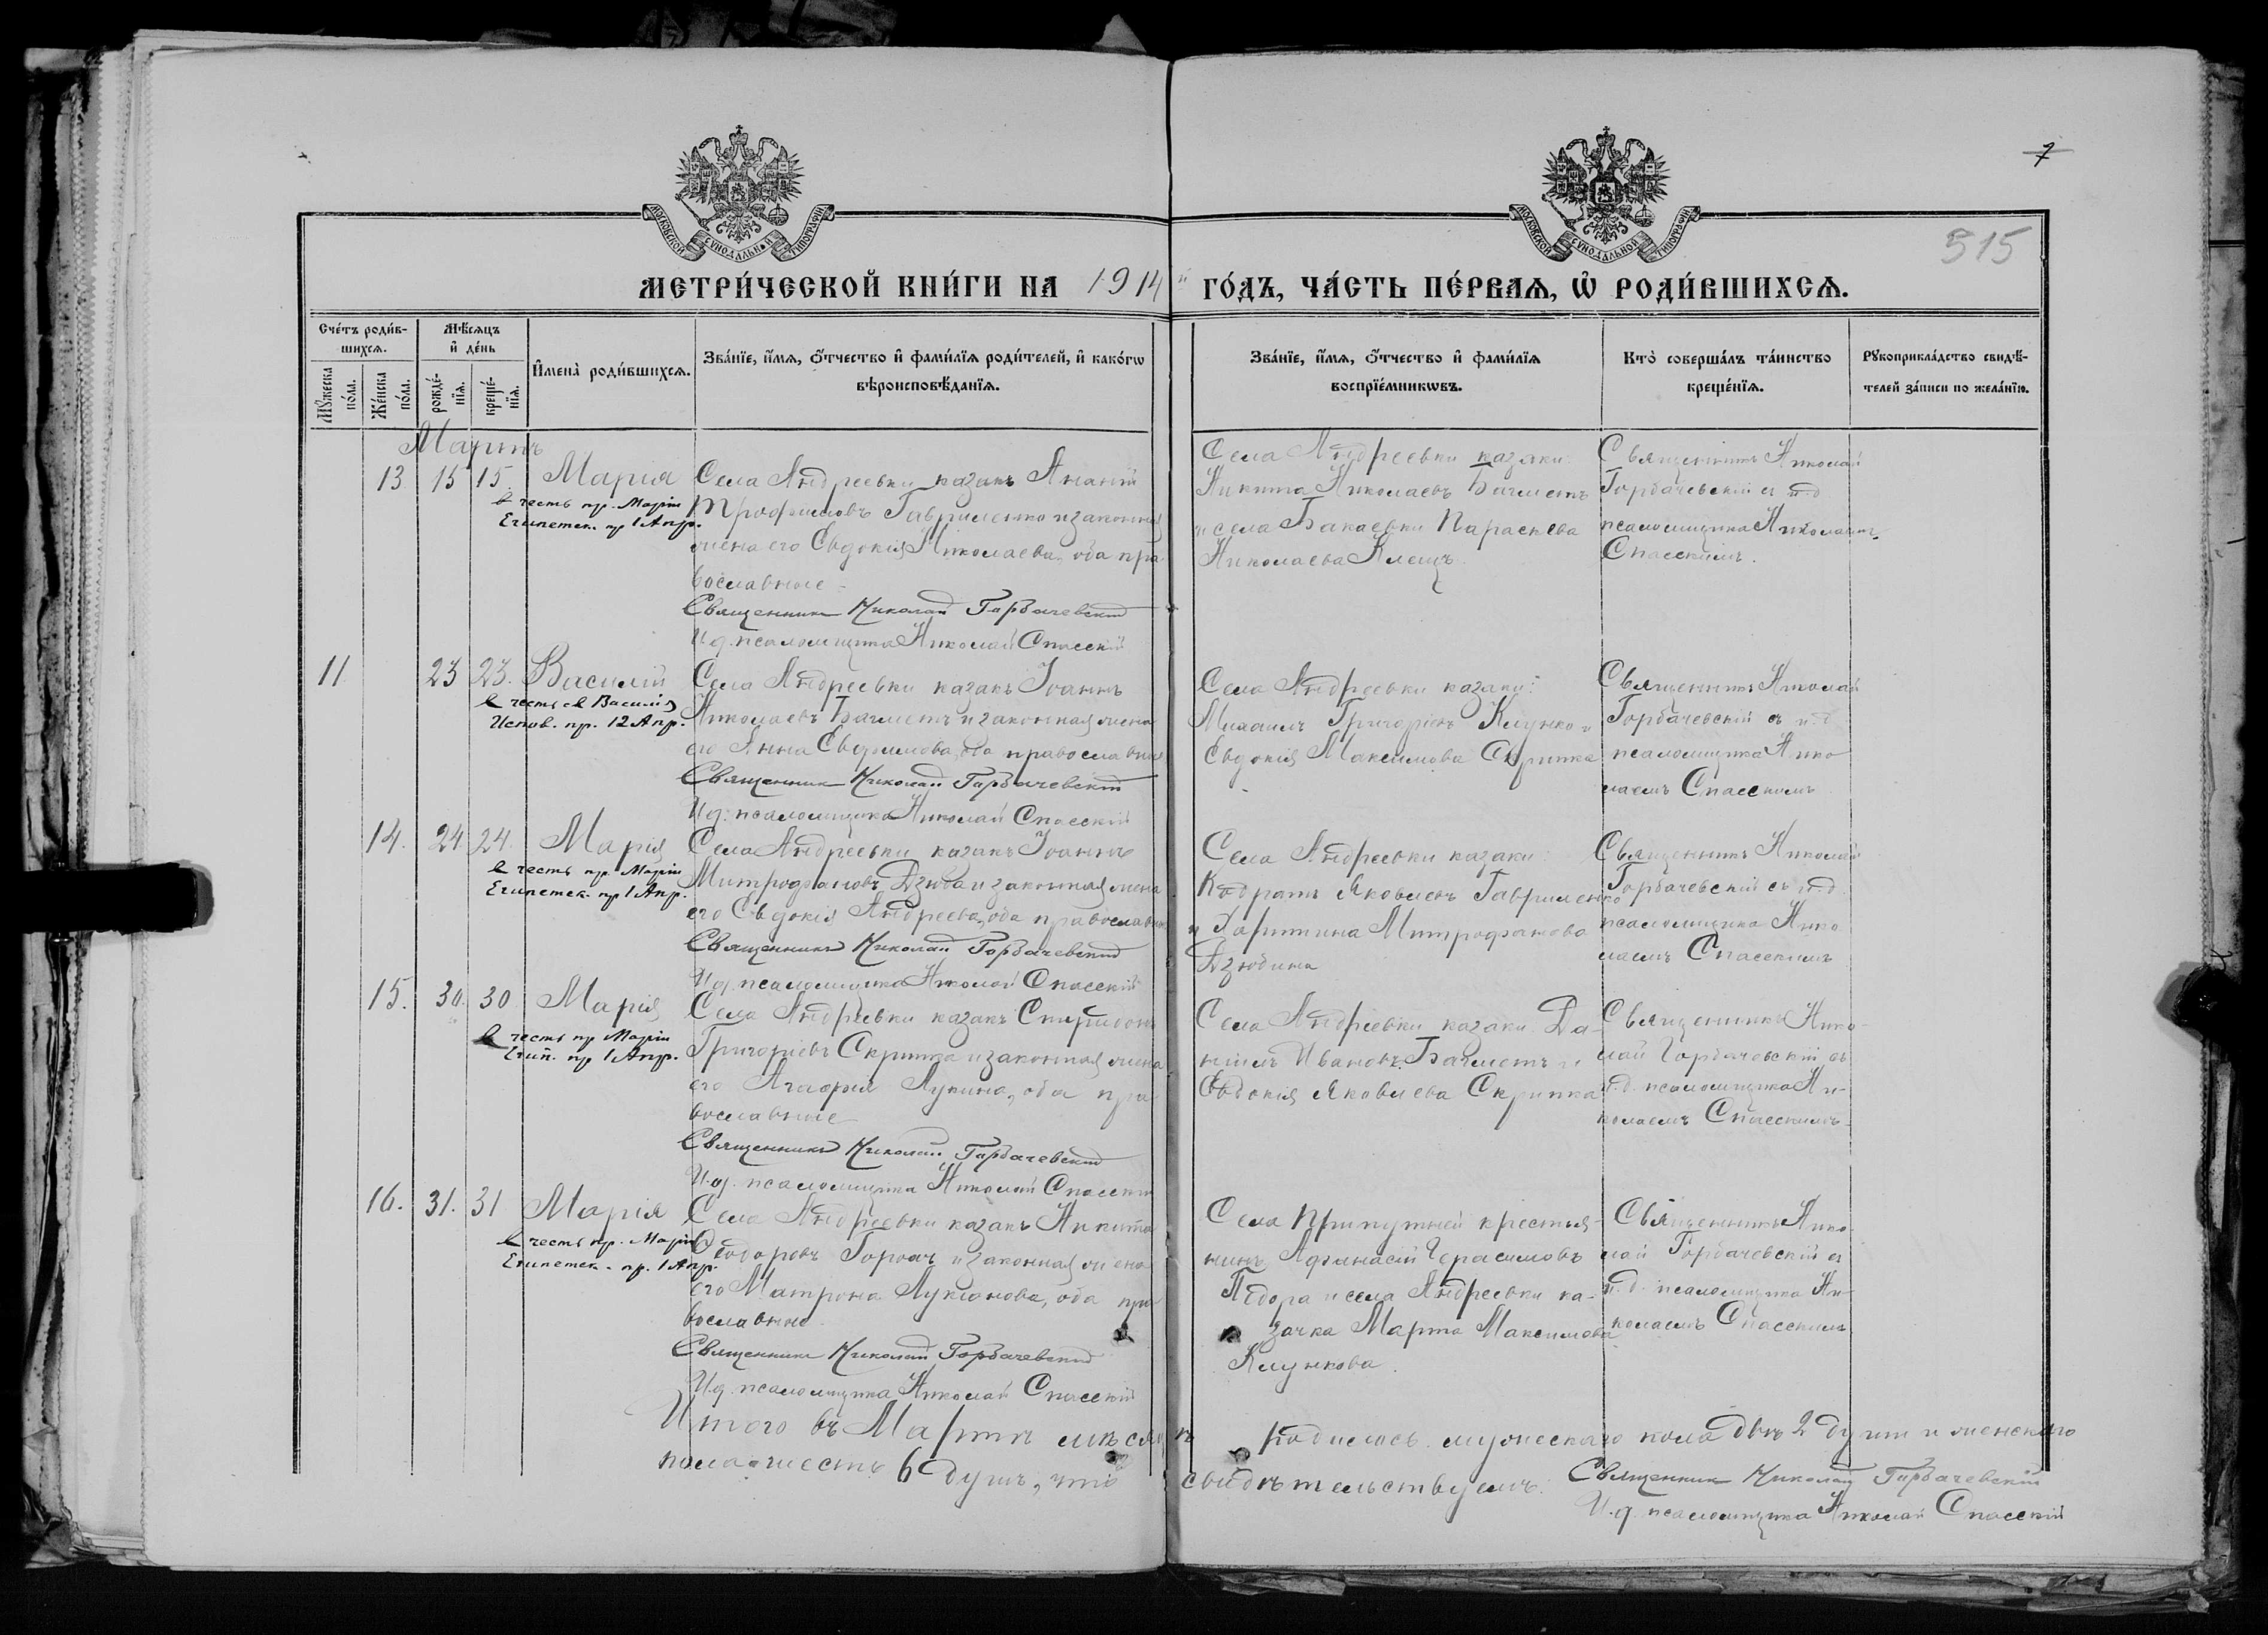 7
515
МОСКОВСКОЙ СѴНОДАЛЬНОЙ ТИПОГРАФІИ
МОСКОВСКОЙ СѴНОДАЛЬНОЙ ТИПОГРАФІИ
МЕТРИ́ЧЕСКОЙ КНИ́ГИ НА 1914й ГО́ДЪ, ЧА́СТЬ ПЕ́РВАЯ, Ѡ РОДИ́ВШИХСЯ.
Сче́тъ роди́в-
шихся.
Мѣ́сяцъ
и де́нь
Мꙋ́жеска по́ла.
Же́нска по́ла.
рожде́-
нїя.
креще́-
нїя.
Имена̀ роди́вшихся.
Зва́нїе, и́мя, ѻ҆́тчество и фами́лїя роди́телей, и како́гѡ
вѣроисповѣ́данїя.
Зва́нїе, и́мя, ѻ҆́тчество и фами́лїя
воспрїе́мникѡвъ.
Кто̀ соверша́лъ та́инство
креще́нїя.
Рꙋкоприкла́дство свидѣ́-
телей за́писи по жела́нїю.
Мартъ
13 15 15. Марія
в честь пр. Маріи
Египетск. пр 1 Апр.
Села Андреевки казакъ Ананій
Трофимовъ Гавриленко и законная
жена его Евдокія Николаева, оба пра
вославные
Священникъ Николай Горбачевскій
И.д. псаломщика Николай Спасскій
Села Андреевки казаки:
Никита Николаевъ Багметъ
и села Бакаевки Параскева
Николаева Клещъ.
Священникъ Николай
Горбачевскій съ и.д
псаломщика Николаемъ
Спасскимъ.
11 23 23. Василій
в честь св Василія
Испов. пр. 12 Апр.
Села Андреевки казакъ Іоаннъ
Николаевъ Багметъ и законная жена
его Анна Евфимова, оба православные
Священникъ Николай Горбачевскій
И.д. псаломщика Николай Спасскій
Села Андреевки казаки:
Михаилъ Григоріевъ Клунко и
Евдокія Максимова Скрипка
Священникъ Николай
Горбачевскій съ и.д
псаломщика Нико
лаемъ Спасскимъ
14. 24 24. Марія
в честь пр. Маріи
Египетск. пр 1 Апр.
Села Андреевки казакъ Іоаннъ
Митрофановъ Дзюба и законная жена
его Евдокія Андреева, оба православн
Священникъ Николай Горбачевскій
И.д. псаломщика Николай Спасскій
Села Андреевки казаки:
Кодратъ Яковлевъ Гавриленко
и Харитина Митрофанова
Дзюбина
Священникъ Николай
Горбачевскій съ и.д.
псаломщика Нико
лаемъ Спасскимъ
15. 30. 30 Марія
в честь пр Маріи
Егип. пр 1 Апр.
Села Андреевки казакъ Спиридонъ
Григоріевъ Скрипка и законная жена
его Агафія Лукина, оба пра
вославные
Священникъ Николай Горбачевскій
И.д. псаломщика Николай Спасскій
Села Андреевки казаки Да-
ніилъ Ивановъ Багметъ и
Евдокія Яковлева Скрипка
Священникъ Нико-
лай Горбачевскій съ
и.д. псаломщика Ни-
колаемъ Спасскимъ
16. 31. 31 Марія
в честь пр. Маріи
Египетск. пр. 1 Апр.
Села Андреевки казакъ Никита
Ѳеодоровъ Горкачъ и законная жена
его Матрона Лукіанова, оба пра
вославные
Священникъ Николай Горбачевскій
И.д. псаломщика Николай Спасскій
Села Припутней крестья-
нинъ Афанасій Герасимовъ
Педора и села Андреевки ка-
зачка Марта Максимова
Клункова.
Священникъ Нико-
лай Горбачевскій съ
и.д. псаломщика Ни-
колаемъ Спасскимъ
Итого въ Мартѣ мѣсяцѣ родилось мужескаго пола двѣ 2 души и женскаго
пола шесть 6 душъ, что свидѣтельствуемъ. Священникъ Николай Горбачевскій
И.д. псаломщика Николай Спасскій